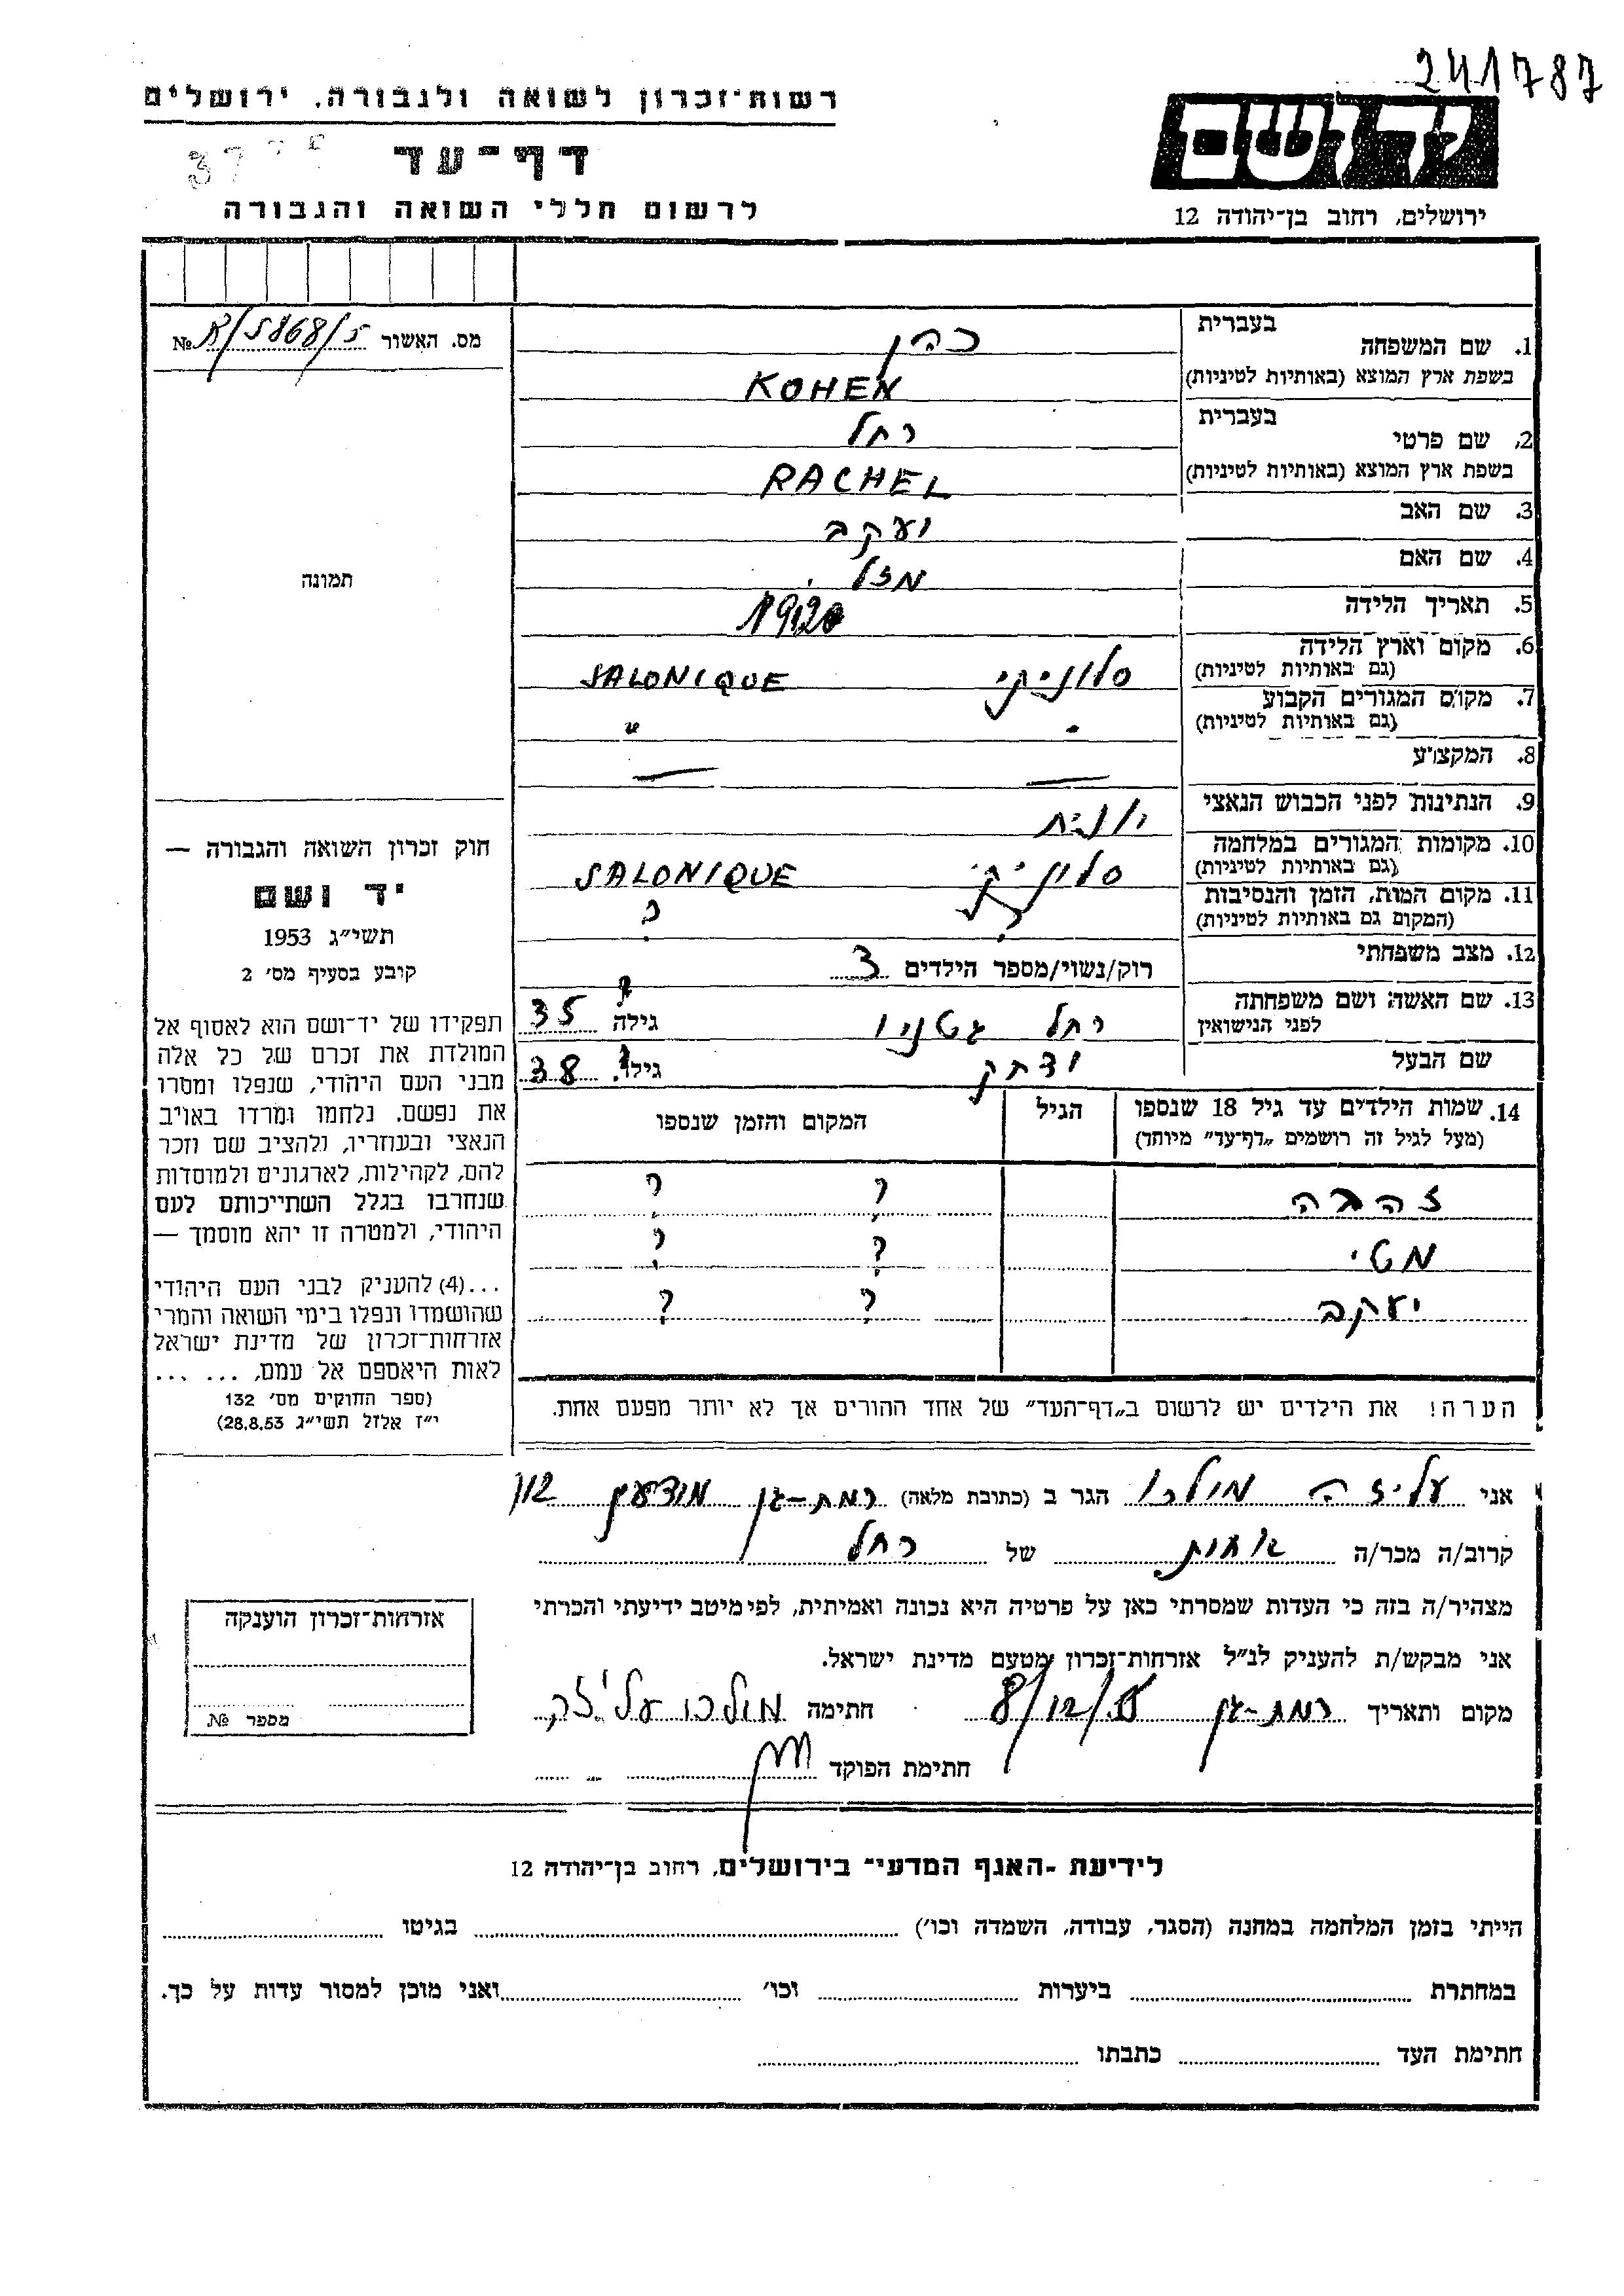 241787
רשות־זכרון לשואה ולגבורה, ירושלים
יד ושם
דף־עד
37
לרשום חללי השואה והגבורה
ירושלים, רחוב בן־יהודה 12
מס. האשור 5/5868/א №
בעברית
1. שם המשפחה כהן
בשפת ארץ המוצא (באותיות לטיניות) KOHEN
בעברית
2. שם פרטי רחל
בשפת ארץ המוצא (באותיות לטיניות) RACHEL
3. שם האב יעקב
4. שם האם מזל
5. תאריך הלידה 1920
6. מקום וארץ הלידה סלוניקי SALONIQUE
(גם באותיות לטיניות)
7. מקום המגורים הקבוע " "
(גם באותיות לטיניות)
8. המקצוע — —
9. הנתינות לפני הכבוש הנאצי יונית
10. מקומות המגורים במלחמה סלוניקי SALONIQUE
(גם באותיות לטיניות)
11. מקום המות, הזמן והנסיבות ? ?
(המקום גם באותיות לטיניות)
12. מצב משפחתי רוק/נשוי/מספר הילדים 3
13. שם האשה ושם משפחתה רחל גטניו גילה 35 ?
לפני הנישואין
שם הבעל יצחק גילו 38 ?
14. שמות הילדים עד גיל 18 שנספו הגיל המקום והזמן שנספו
(מעל לגיל זה רושמים "דף־עד" מיוחד)
זהבה ? ?
מטי ? ?
יעקב ? ?
הערה! את הילדים יש לרשום ב"דף־העד" של אחד ההורים אך לא יותר מפעם אחת.
תמונה
חוק זכרון השואה והגבורה —
יד ושם
תשי"ג 1953
קובע בסעיף מס' 2
תפקידו של יד־ושם הוא לאסוף אל
המולדת את זכרם של כל אלה
מבני העם היהודי, שנפלו ומסרו
את נפשם, נלחמו ומרדו באויב
הנאצי ובעוזריו, ולהציב שם וזכר
להם, לקהילות, לארגונים ולמוסדות
שנחרבו בגלל השתייכותם לעם
היהודי, ולמטרה זו יהא מוסמך —
...(4) להעניק לבני העם היהודי
שהושמדו ונפלו בימי השואה והמרי
אזרחות־זכרון של מדינת ישראל
לאות היאספם אל עמם, ... ...
(ספר החוקים מס' 132
י"ז אלול תשי"ג 28.8.53)
אני עליזה מולכו הגר ב (כתובת מלאה) רמת-גן מודעין 112
קרוב/ה מכר/ה אחות של רחל
מצהיר/ה בזה כי העדות שמסרתי כאן על פרטיה היא נכונה ואמיתית, לפי מיטב ידיעתי והכרתי
אני מבקש/ת להעניק לנ"ל אזרחות־זכרון מטעם מדינת ישראל.
מקום ותאריך רמת-גן חתימה מולכו עליזה
חתימת הפוקד
אזרחות־זכרון הוענקה
מספר №
לידיעת -האגף המדעי- בירושלים, רחוב בן־יהודה 12
הייתי בזמן המלחמה במחנה (הסגר, עבודה, השמדה וכו') בגיטו
במחתרת ביערות וכו' ואני מוכן למסור עדות על כך.
חתימת העד כתבתו